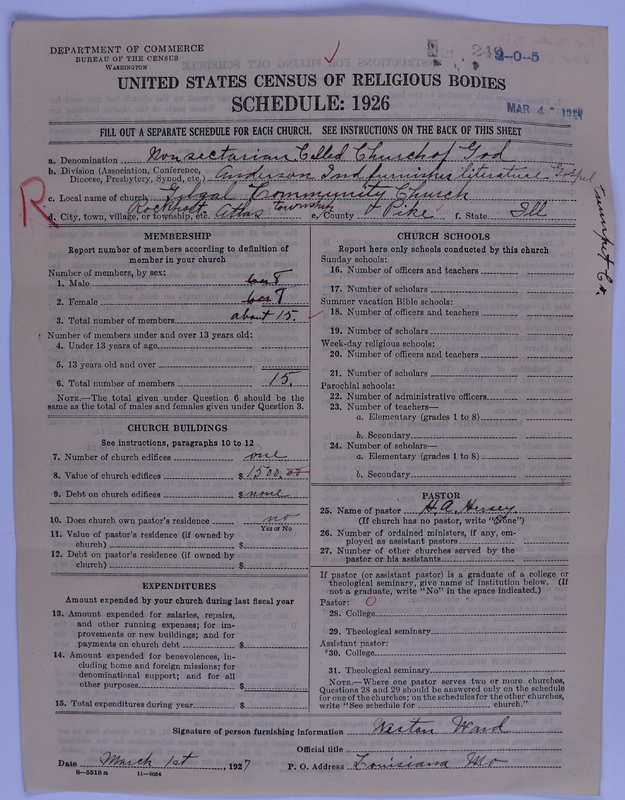 DEPARTMENT OF COMMERCE
BUREAU OF THE CENSUS
WASHINGTON
2-0-5
MAR 4
UNITED STATES CENSUS OF RELIGIOUS BODIES
SCHEDULE: 1926
FILL OUT A SEPARATE SCHEDULE FOR EACH CHURCH. SEE INSTRUCTIONS ON THE BACK OF THIS SHEET
a. Denomination Nonsectarian Called Church of God
b. Division (Association, Conference, Diocese, Presbytery, Synod, etc.) Anderson Ind furnishes literature Gospel Trumpet Co.
c. Local name of church Gilgal Community Church
d. City, town, village, or township, etc. Rockport Atlas township e. County Pike f. State Ill
R
MEMBERSHIP
Report number of members according to definition of
member in your church
Number of members, by sex:
1. Male
2. Female
3. Total number of members about 15.
Number of members under and over 13 years old:
4. Under 13 years of age
5. 13 years old and over
6. Total number of members 15.
NOTE.—The total given under Question 6 should be
same as the total of males and females given under Question 3.
CHURCH BUILDINGS
See instructions, paragraphs 10 to 12
7. Number of church edifices one
8. Value of church edifices $ 1500.00
9. Debt on church edifices $ none
10. Does church own pastor's residence no
Yes or No
11. Value of pastor's residence (if owned by
church) $
12. Debt on pastor's residence (if owned by
church) $
EXPENDITURES
Amount expended by your church during last fiscal year
13. Amount expended for salaries, repairs,
and other running expenses; for im-
provements or new buildings; and for
payments on church debt $
14. Amount expended for benevolences, in-
cluding home and foreign missions; for
denominational support; and for all
other purposes $
15. Total expenditures during year $
CHURCH SCHOOLS
Report here only schools conducted by this church
Sunday schools:
16. Number of officers and teachers
17. Number of scholars
Summer vacation Bible schools:
18. Number of officers and teachers
19. Number of scholars
Week-day religious schools:
20. Number of officers and teachers
21. Number of scholars
Parochial schools:
22. Number of administrative officers
23. Number of teachers—
a. Elementary (grades 1 to 8)
b. Secondary
24. Number of scholars—
a. Elementary (grades 1 to 8)
b. Secondary
PASTOR
25. Name of pastor H. A. Hersey
(If church has no pastor, write "None")
26. Number of ordained ministers, if any, em-
ployed as assistant pastors
27. Number of other churches served by the
pastor or his assistants
If pastor (or assistant pastor) is a graduate of a college or
theological seminary, give name of institution below. (If
not a graduate, write "No" in the space indicated.)
Pastor:
28. College
29. Theological seminary
Assistant pastor:
30. College
31. Theological seminary
NOTE.—Where one pastor serves two or more churches,
Questions 28 and 29 should be answered only on the schedule
for one of the churches; on the schedules for the other churches,
write "See schedule for church."
Signature of person furnishing information Weston Ward
Official title
Date March 1st, 1927 P. O. Address Louisiana Mo
8—5518 a 11—9064